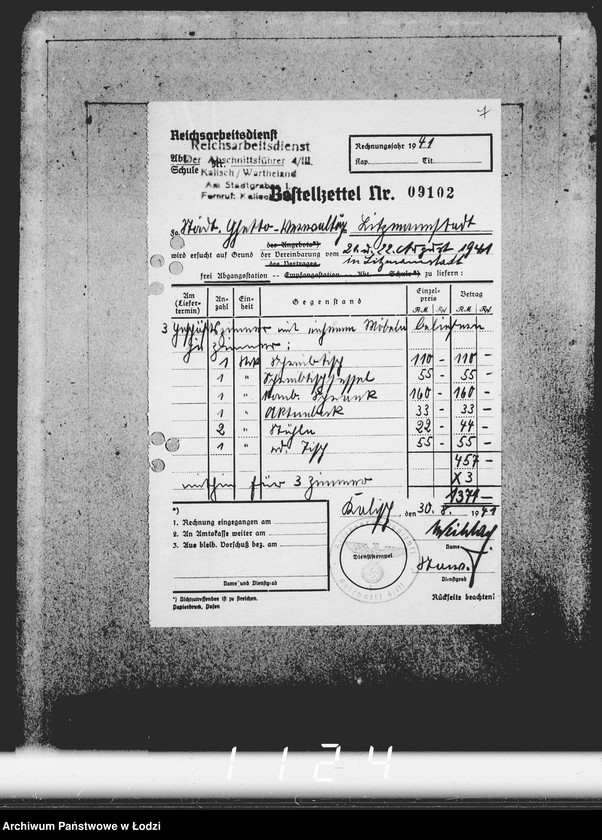 Reichsarbeitsdienst
Reichsarbeitsdienst
Abt. Nr. Der Abschnittsführer 4/III.
Schule Kalisch / Wartheland
Am Stadtgraben 1
Fernruf: Kalisch
Rechnungsjahr 1941
Kap. Tit.
Bestellzettel Nr. 09102
Fa. Städt. Ghetto-Verwaltg. Litzmannstadt
des Angebots*)
wird ersucht auf Grund der Vereinbarung vom 21. u. 22. August 1941
des Vertrages in Litzmannstadt
frei Abgangsstation -- Empfangsstation -- Abt. -- Schule*) zu liefern:
Am (Liefertermin) Anzahl Einheit Gegenstand Einzelpreis RM Rpf Betrag RM Rpf
3 Geschäftszimmer mit eichenen Möbeln beliefern
je Zimmer:
1 Stck Schreibtisch 110 - 110 -
1 " Schreibtischsessel 55 - 55 -
1 " Komb. Schrank 160 - 160 -
1 " Aktenbock 33 - 33 -
2 " Stühle 22 - 44 -
1 " rd. Tisch 55 - 55 -
457 -
x 3
mithin für 3 Zimmer 1371 -
Kalisch, den 30. 8. 1941
*)
1. Rechnung eingegangen am
2. An Amtskasse weiter am
3. Aus bleib. Vorschuß bez. am
Name und Dienstgrad
Dienststempel
Name
Dienstgrad
*) Nichtzutreffendes ist zu streichen.
Papierdruck, Posen
Rückseite beachten!
1124
Archiwum Państwowe w Łodzi